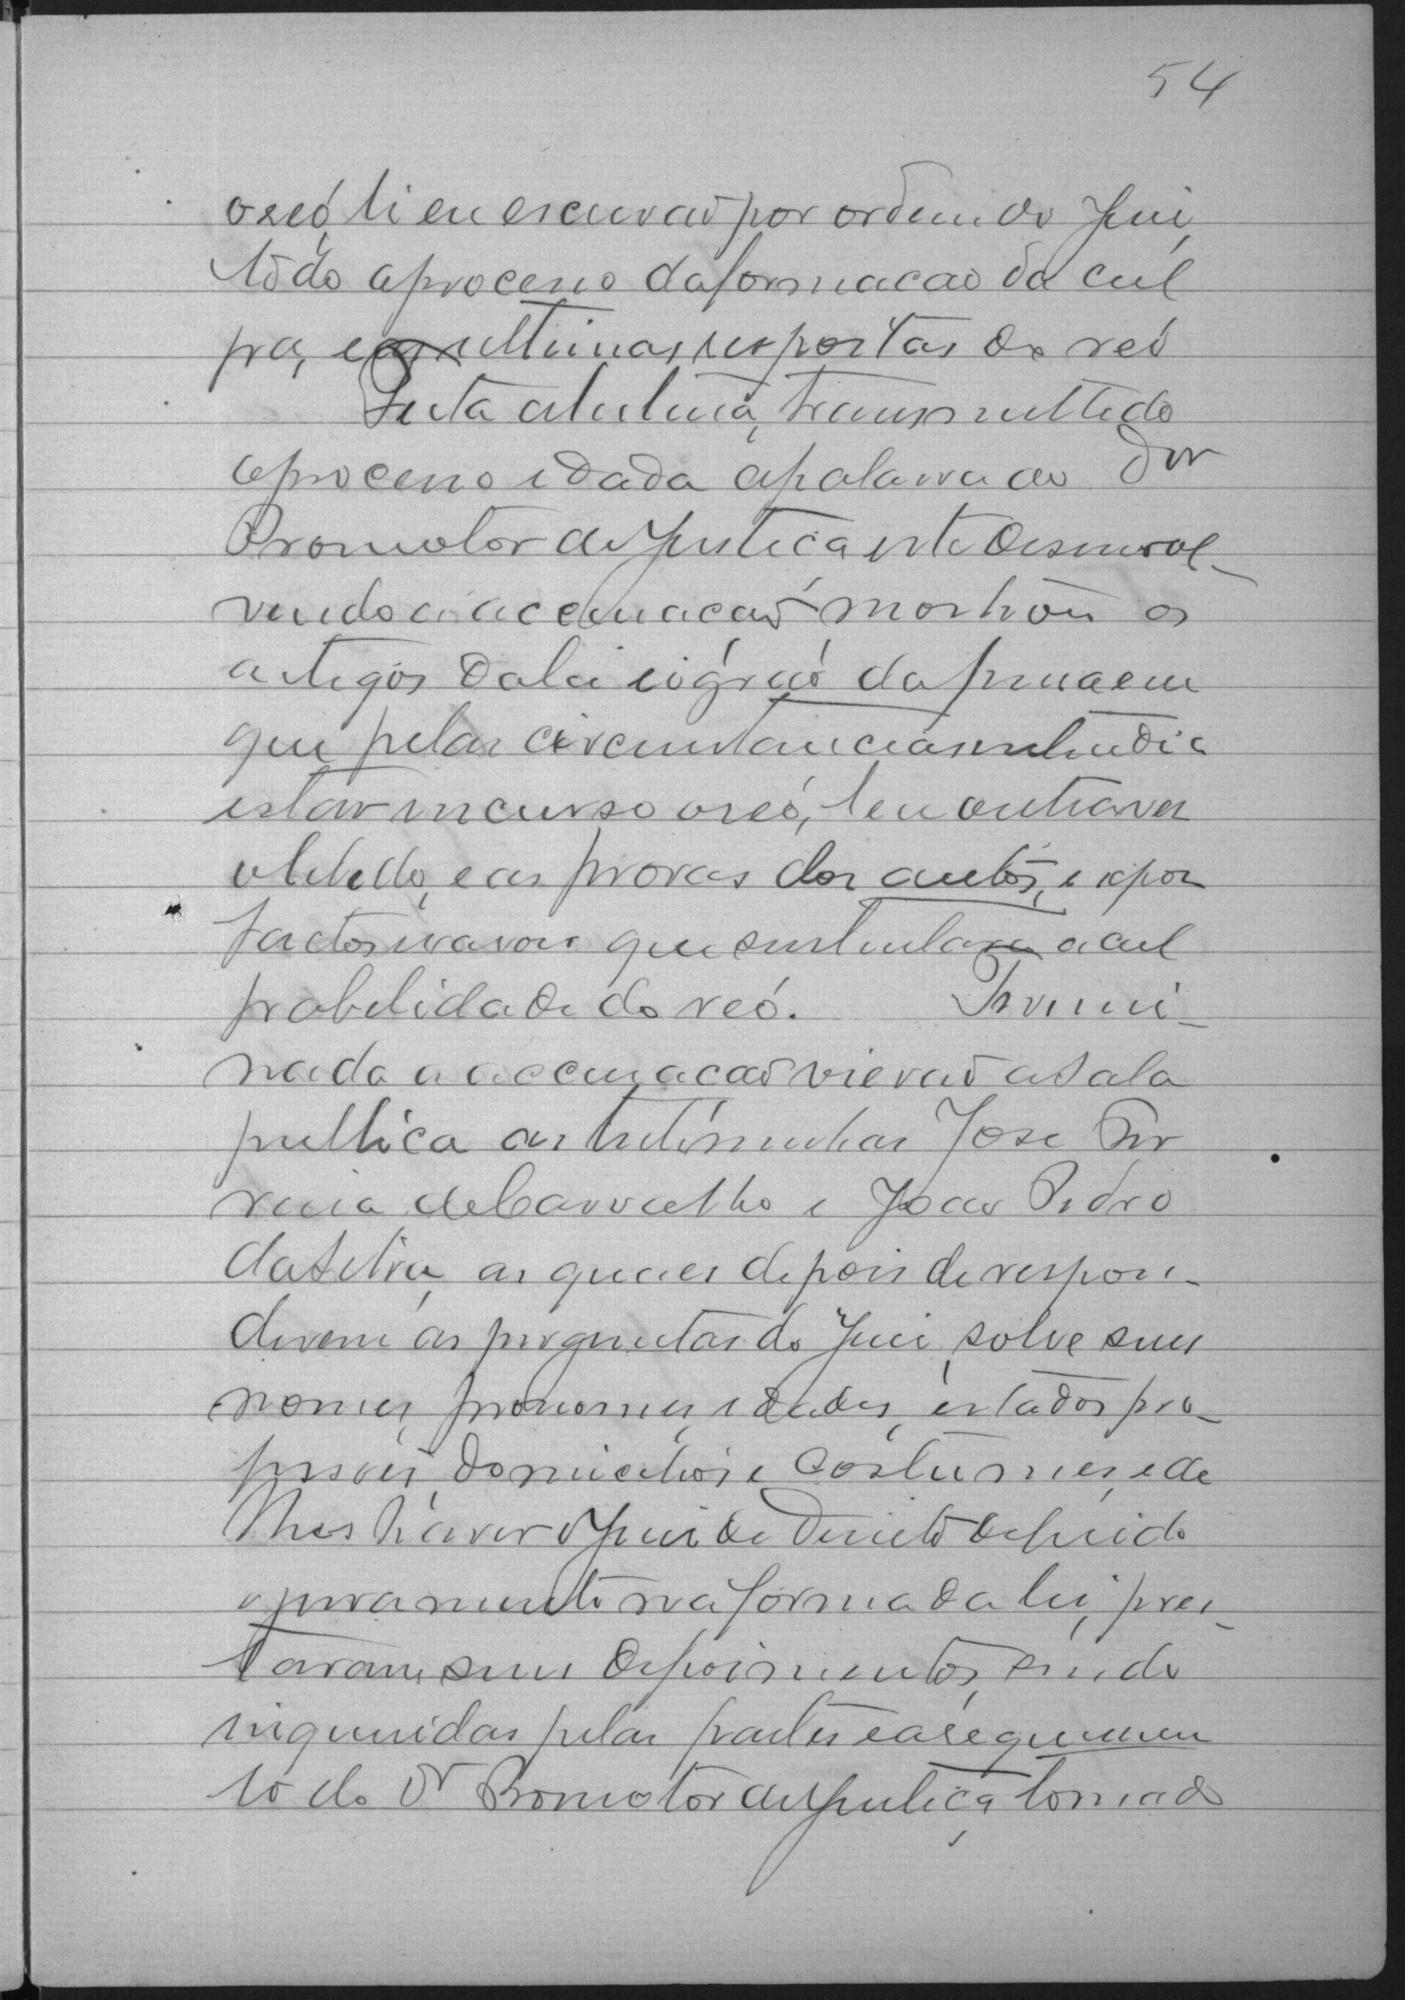 54
o reó, li eu escrivaõ por ordem do Juiz
todo o processo da formacao da cul
pa, e as ultimas respostas do reó
Feita a leitura, transmettido
o processo e dada a palavra ao Dor
Promotor de Justiça este desenvol-
vendo a accusacaõ mostrou os
artegos da lei e o gráo da pena em
que pelas circumstancias entendia
estar incurso o reó, leu outra vez
o libello, e as provas dos autos, e expos
factos e rasoes que sustentava a cul
pabelidade do reó. Termi-
nada a accusacaõ vieraõ a sala
publica as testimunhas Jose Per
reira de Carvalho e Joao Pedro
da Silva, as quaes depois de respon-
derem as perguntas do Juiz, sobre seus
nomes, pronomes, edades, estados pro-
fissoes, domicilios e Costumes, e de
lhes haver o Juiz de Direito deferido
o juramento na forma da lei, pres-
taram seus depoimentos, sendo
inqueridas pelas partes e a requerimen
to do Dr Promotor de Justiça tomado